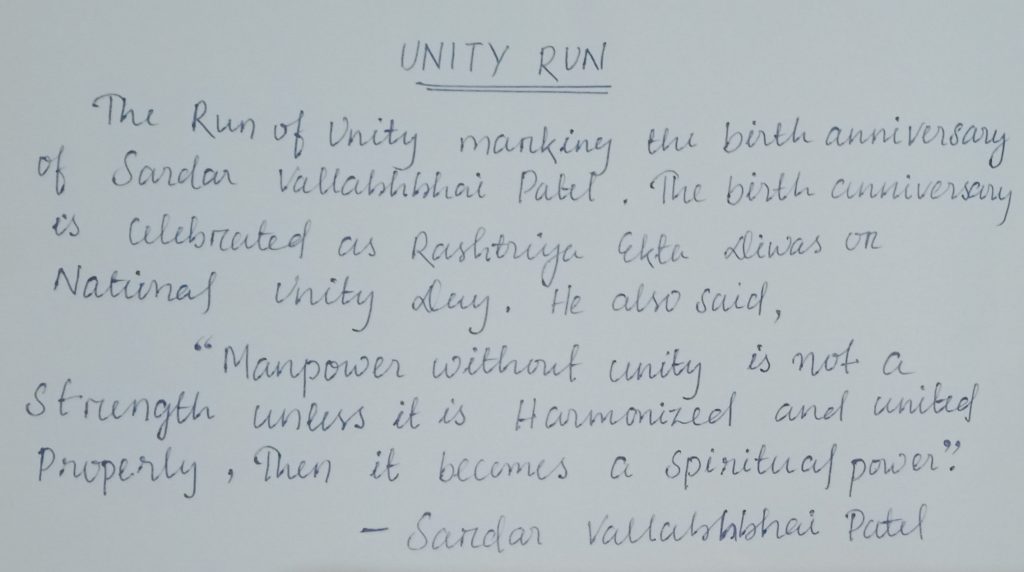 UNITY RUN
The Run of Unity marking the birth anniversary
of Sardar Vallabhbhai Patel. The birth anniversary
is celebrated as Rashtriya Ekta Diwas or
National Unity Day. He also said,
“Manpower without unity is not a
Strength unless it is Harmonized and united
Properly, Then it becomes a spiritual power”.
- Sardar Vallabhbhai Patel